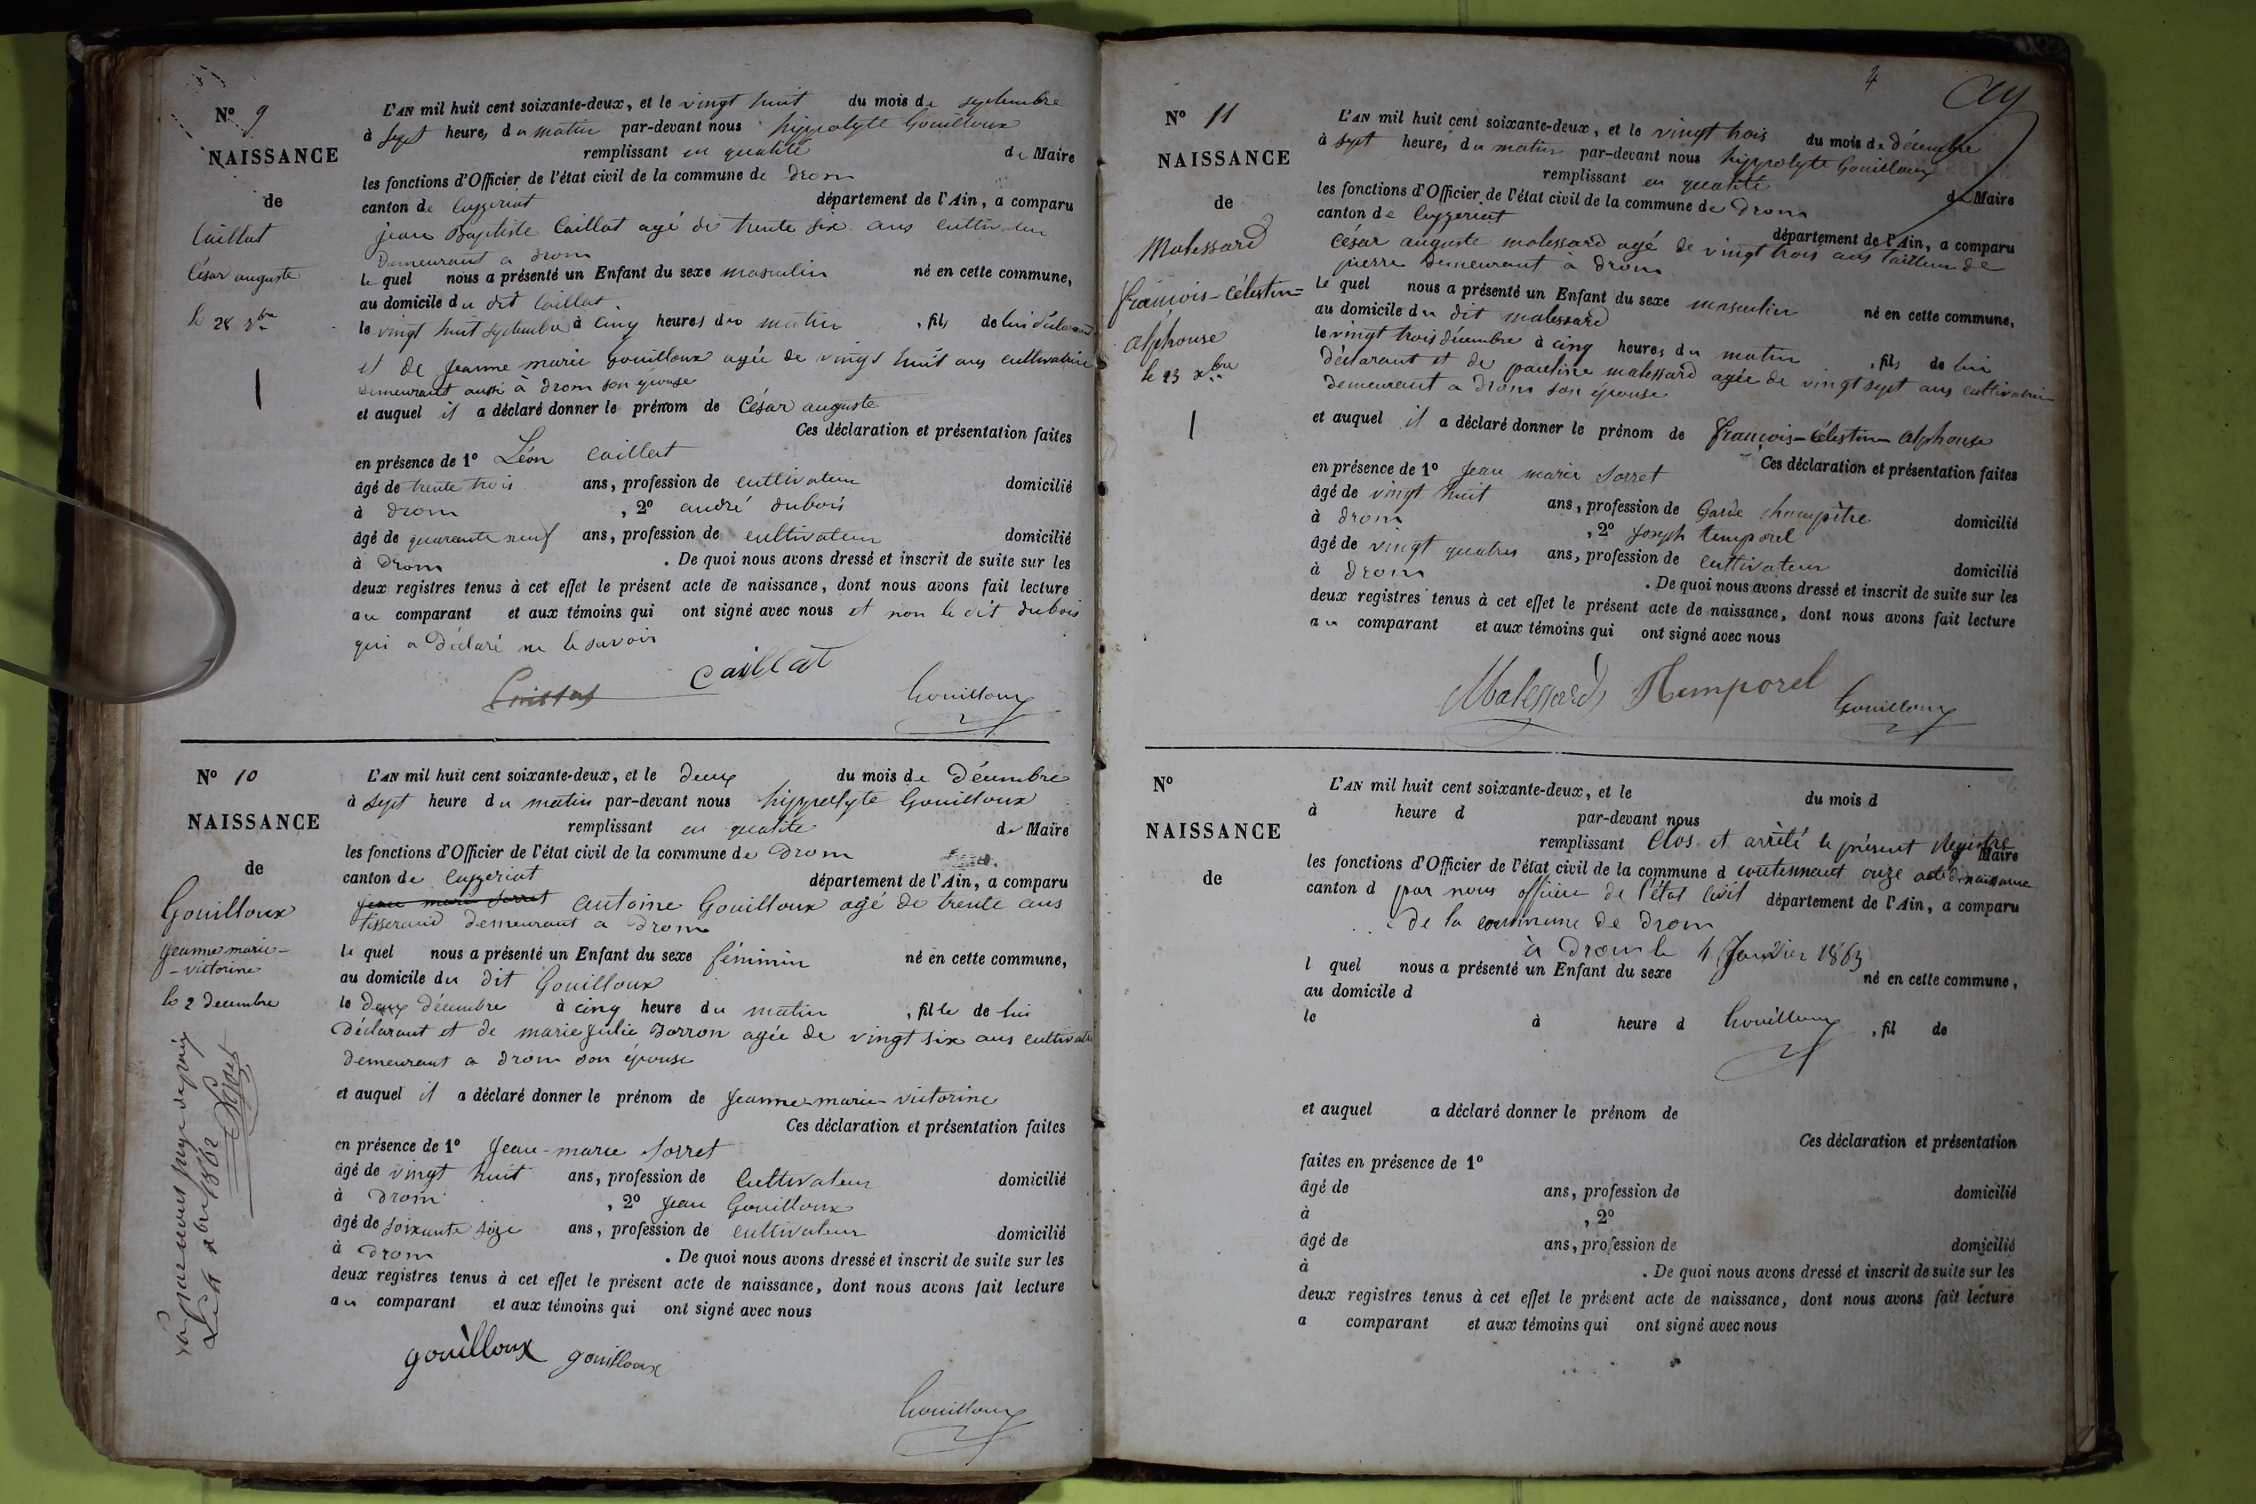 N° 9
NAISSANCE
de
Caillat
César auguste
le 28 7bre
L'AN mil huit cent soixante-deux, et le vingt huit du mois de septembre
à sept heures du matin par-devant nous hyppolyte Gouilloux
remplissant en qualité de Maire
les fonctions d'Officier de l'état civil de la commune de Drom
canton de Ceyzeriat département de l'Ain, a comparu
jean Baptiste Caillat agé de trente six ans cultivateur
Demeurant a Drom
le quel nous a présenté un Enfant du sexe masculin né en cette commune,
au domicile du dit Caillat
le vingt huit septembre à cinq heures du matin, fils de lui déclarant
et de jeanne marie gouilloux agée de vingt huit ans cultivatrice
Demeurant aussi à Drom son épouse
et auquel il a déclaré donner le prénom de César auguste
Ces déclaration et présentation faites
en présence de 1° Léon Caillat
âgé de trente trois ans, profession de cultivateur domicilié
à Drom, 2° andré Dubois
âgé de quarante neuf ans, profession de cultivateur domicilié
à Drom. De quoi nous avons dressé et inscrit de suite sur les
deux registres tenus à cet effet le présent acte de naissance, dont nous avons fait lecture
au comparant et aux témoins qui ont signé avec nous et non le dit Dubois
qui a Déclaré ne le savoir
Caillat
Gouilloux
N° 10
NAISSANCE
de
Gouilloux
jeanne marie-
- victorine
le 2 Decembre
L'AN mil huit cent soixante-deux, et le Deux du mois de Décembre
à sept heure du matin par-devant nous hyppolyte Gouilloux
remplissant en qualité de Maire
les fonctions d'Officier de l'état civil de la commune de Drom
canton de Ceyzeriat département de l'Ain, a comparu
jean marie Sorret antoine Gouilloux agé de trente ans
tisserand demeurant a Drom
le quel nous a présenté un Enfant du sexe féminin né en cette commune,
au domicile du dit Gouilloux
le Deux Décembre à cinq heure du matin, fille de lui
Déclarant et de marie julie Borron agée de vingt six ans cultivatrice
Demeurant a Drom son épouse
et auquel il a déclaré donner le prénom de jeanne-marie-victorine
Ces déclaration et présentation faites
en présence de 1° Jean-marie Sorret
âgé de vingt huit ans, profession de cultivateur domicilié
à Drom, 2° jean Gouilloux
âgé de soixante seize ans, profession de cultivateur domicilié
à Drom. De quoi nous avons dressé et inscrit de suite sur les
deux registres tenus à cet effet le présent acte de naissance, dont nous avons fait lecture
au comparant et aux témoins qui ont signé avec nous
gouilloux gouilloux
Gouilloux
Vu par nous juge de paix
Le 11 xbre 1862
4
N° 11
NAISSANCE
de
Malessard
françois-Célestin-
alphonse
le 23 xbre
L'AN mil huit cent soixante-deux, et le vingt trois du mois de Décembre
à sept heures du matin par-devant nous hyppolyte Gouilloux
remplissant en qualité de Maire
les fonctions d'Officier de l'état civil de la commune de Drom
canton de Ceyzeriat département de l'Ain, a comparu
César auguste malessard agé de vingt trois ans tailleur de
pierre Demeurant à Drom
le quel nous a présenté un Enfant du sexe masculin né en cette commune,
au domicile du dit malessard
le vingt trois Décembre à cinq heures du matin, fils de lui
Déclarant et de pauline malessard agée de vingt sept ans cultivatrice
Demeurant a Drom son épouse
et auquel il a déclaré donner le prénom de françois-Célestin alphonse
Ces déclaration et présentation faites
en présence de 1° Jean marie Sorret
âgé de vingt huit ans, profession de Garde champêtre domicilié
à Drom, 2° Joseph temporel
âgé de vingt quatres ans, profession de cultivateur domicilié
à Drom. De quoi nous avons dressé et inscrit de suite sur les
deux registres tenus à cet effet le présent acte de naissance, dont nous avons fait lecture
au comparant et aux témoins qui ont signé avec nous
Malessard Temporel Gouilloux
N°
NAISSANCE
de
L'AN mil huit cent soixante-deux, et le du mois d
à heure d par-devant nous
remplissant Clos et arrêté le présent Registre d Maire
les fonctions d'Officier de l'état civil de la commune d contennant onze acte de naissance
canton d par nous officier de l'état civil département de l'Ain, a comparu
de la commune de Drom
à Drom le 1 Janvier 1863
l quel nous a présenté un Enfant du sexe né en cette commune,
au domicile d
le à heure d Gouilloux, fil de
et auquel a déclaré donner le prénom de
Ces déclaration et présentation
faites en présence de 1°
âgé de ans, profession de domicilié
à, 2°
âgé de ans, profession de domicilié
à. De quoi nous avons dressé et inscrit de suite sur les
deux registres tenus à cet effet le présent acte de naissance, dont nous avons fait lecture
a comparant et aux témoins qui ont signé avec nous